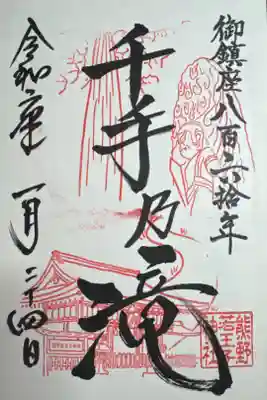 御鎮座八百六拾年
千手乃滝
令和二年 一月二十四日
熊野
若王子
神社